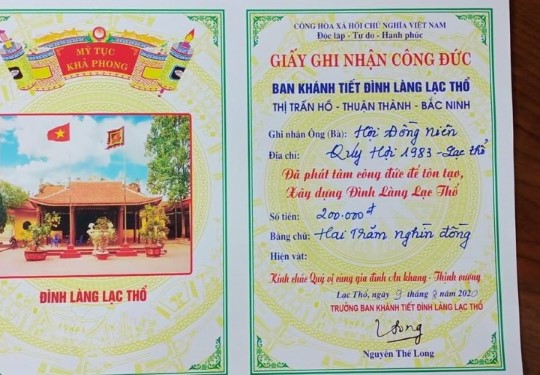 MỸ TỤC
KHẢ PHONG
ĐÌNH LÀNG LẠC THỔ
CỘNG HÒA XÃ HỘI CHỦ NGHĨA VIỆT NAM
Độc lập - Tự do - Hạnh phúc
GIẤY GHI NHẬN CÔNG ĐỨC
BAN KHÁNH TIẾT ĐÌNH LÀNG LẠC THỔ
THỊ TRẤN HỒ - THUẬN THÀNH - BẮC NINH
Ghi nhận Ông (Bà): Hội Đồng niên
Địa chỉ: Quý Hội 1983 - Lạc thổ
Đã phát tâm công đức để tôn tạo,
Xây dựng Đình Làng Lạc Thổ
Số tiền: 200.000đ
Bằng chữ: Hai trăm nghìn đồng
Hiện vật:
Kính chúc Quý vị cùng gia đình An khang - Thịnh vượng
Lạc Thổ, ngày 9 tháng 2 năm 2020
TRƯỞNG BAN KHÁNH TIẾT ĐÌNH LÀNG LẠC THỔ
Long
Nguyễn Thế Long